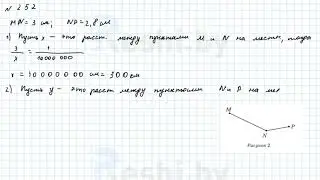 № 252
MN = 3 см; NP = 2,8 см
1) Пусть x - это расст. между пунктами M и N на местн., тогда
3/x = 1/10000000
x = 10000000 см = 300 км
2) Пусть y - это расст между пунктами N и P на мес
M
N
P
Рисунок 2